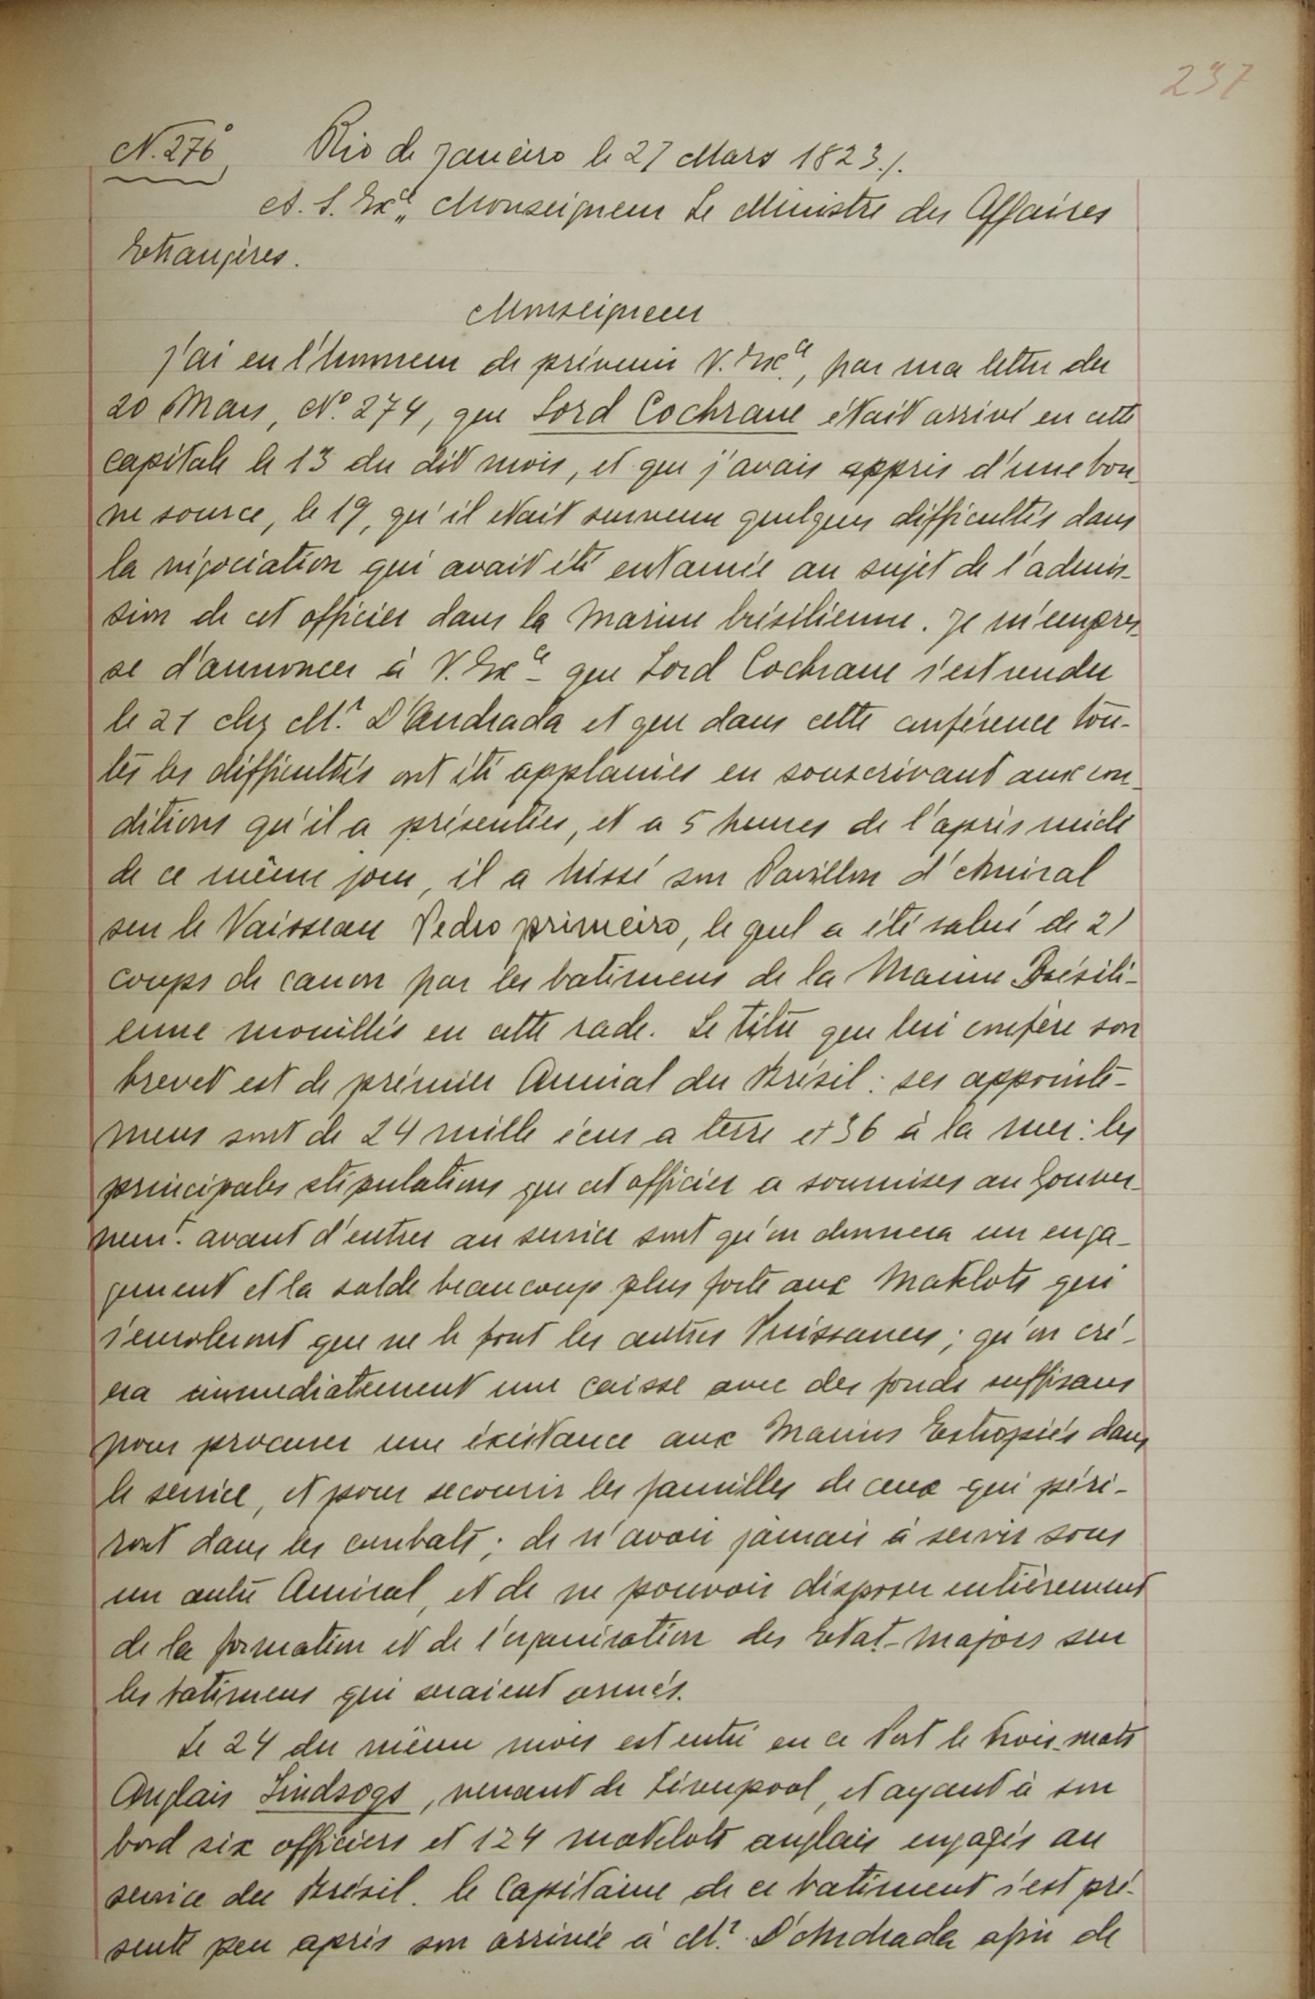 237
N. 276° Rio de Janèiro le 27 Mars 1823./.
A. S. Exce,, Monseigneur Le Ministre des Affaires
Etrangères.
Monseigneur
J'ai eu l'honneur de prévenir V. Exce, par ma lettre du
20 Mars, N° 274, que Lord Cochrane était arrivé en cette
capitale le 13 du dit mois, et que j'avais appris d'une bon-
ne source, le 19, qu'il etait survenu quelques difficultés dans
la négociation qui avait été entamée au sujet de l'admis-
sion de cet officier dans la Marine brésilienne. Je m'empres-
se d'annoncer à V. Exce que Lord Cochrane s'est rendu
le 21 chez Mr. D'Andrada et que dans cette conférence tou-
tes les difficultés ont été applanies en souscrivant aux con-
ditions qu'il a présentées, et a 5 heures de l'après midi
de ce même jour, il a hissé son Pavillon d'Amiral
sur le Vaisseau Pedro primeiro, le quel a été salué de 21
coups de canon par les batimens de la Marine Brésili-
enne mouillés en cette rade. Le titre que lui confère son
brevet est de prémier Amiral du Brésil : ses appointe-
mens sont de 24 mille écus a terre et 36 à la mer : les
principales stipulations que cet officier a soumises au Gouver-
nemt. avant d'entrer au service sont qu'on donnera un enga-
gement et la solde beaucoup plus forte aux Matelots qui
s'enroleront que ne le font les autres Puissances ; qu'on cré-
era immediatement une caisse avec des fonds suffisans
pour procurer une éxistance aux Marins Estropiés dans
le service, et pour secourir les familles de ceux qui péri-
ront dans les combats ; de n'avoir jamais à servir sous
un autre Amiral, et de ne pouvoir disposer entièrement
de la formation et de l'organisation des Etat-Majors sur
les batimens qui seraient armés.
Le 24 du même mois est entré en ce Port le trois-mats
Anglais Lindsogs, venant de Liverpool, et ayant à son
bord six officiers et 124 matelots anglais engagés au
service du Brésil. le Capitaine de ce batiment s'est pré-
senté peu après son arrivée à Mr. D'Andrada afin de